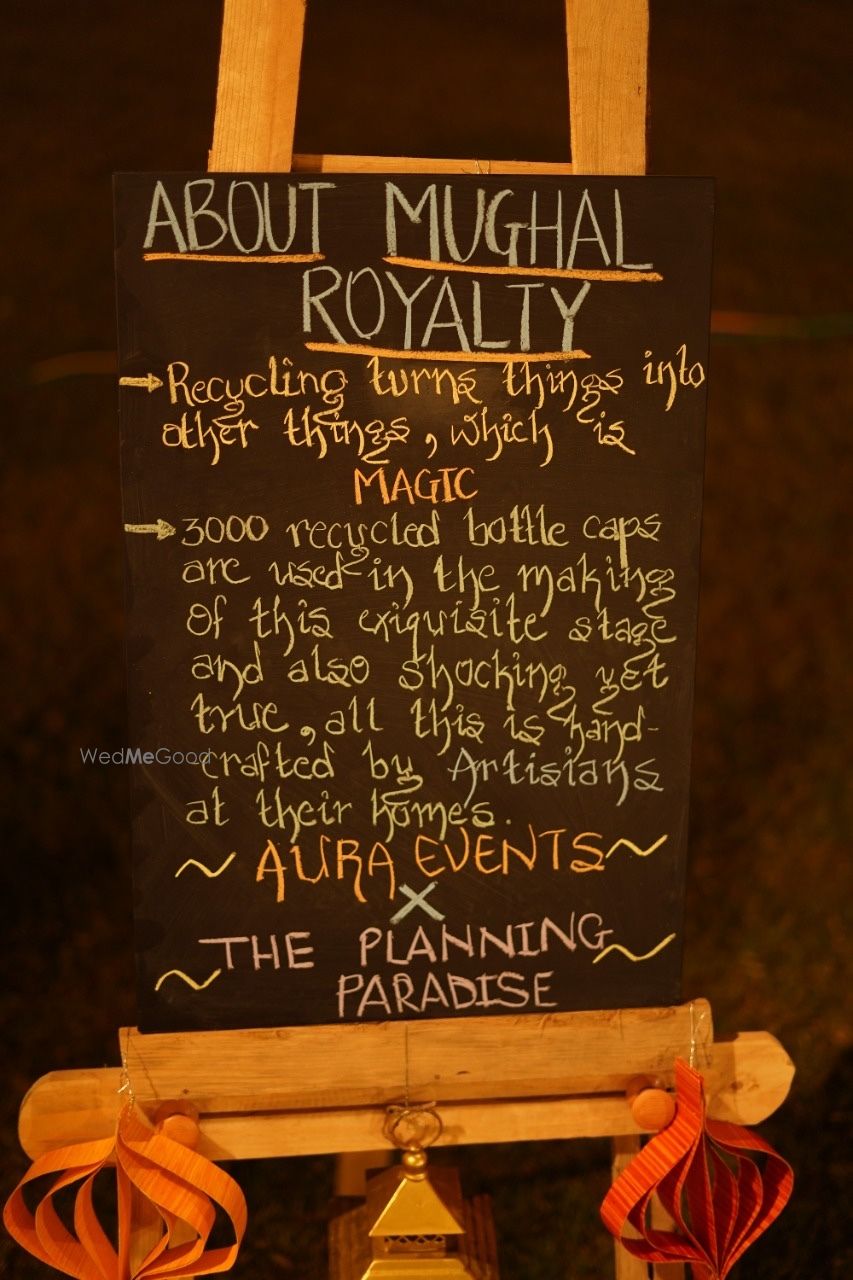 ABOUT MUGHAL
ROYALTY
→ Recycling turns things into
other things, which is
MAGIC
→ 3000 recycled bottle caps
are used in the making
of this exiquisite stage
and also shocking yet
true, all this is hand-
crafted by Artisians
at their homes.
~ AURA EVENTS ~
X
THE PLANNING ~
~ PARADISE
WedMeGood